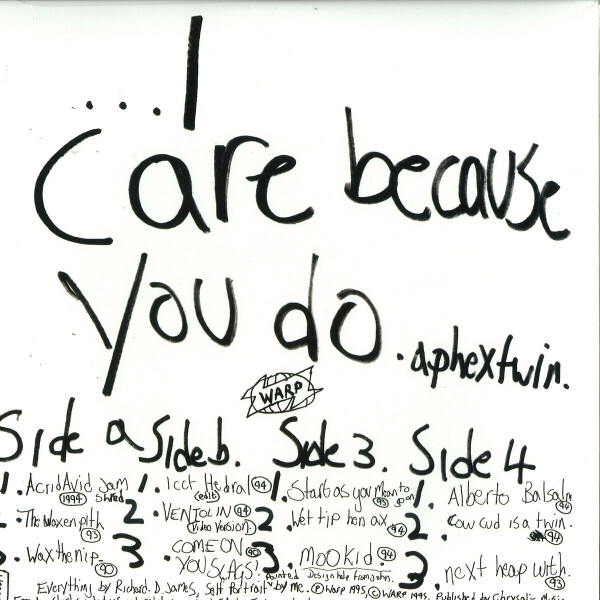 ...I
Care because
You do.
.aphextwin.
WARP
Side a
1. Acrid Avid Jam
Shred
1994
The Waxen pith
93
. Wax the nip.
90
Side b.
1. Icct Hedral 94
(edit)
2 . VENTOLIN 94
(Video Version)
3 . COME ON 90
YOU SLAGS!
Side 3.
1. Start as you Mean to
go on 93
2 . Wet tip hen ax. 94
3 . MOOKid. 94
Side 4
1. Alberto Balsalm
94
2. Cow cud is a twin.
94
3. next heap with.
93
Everything by Richard. D James, Self Portrait painted by me. Design help from John.
Ⓟ Warp 1995, Ⓒ WARP 1995. Published by Chrysalis Music